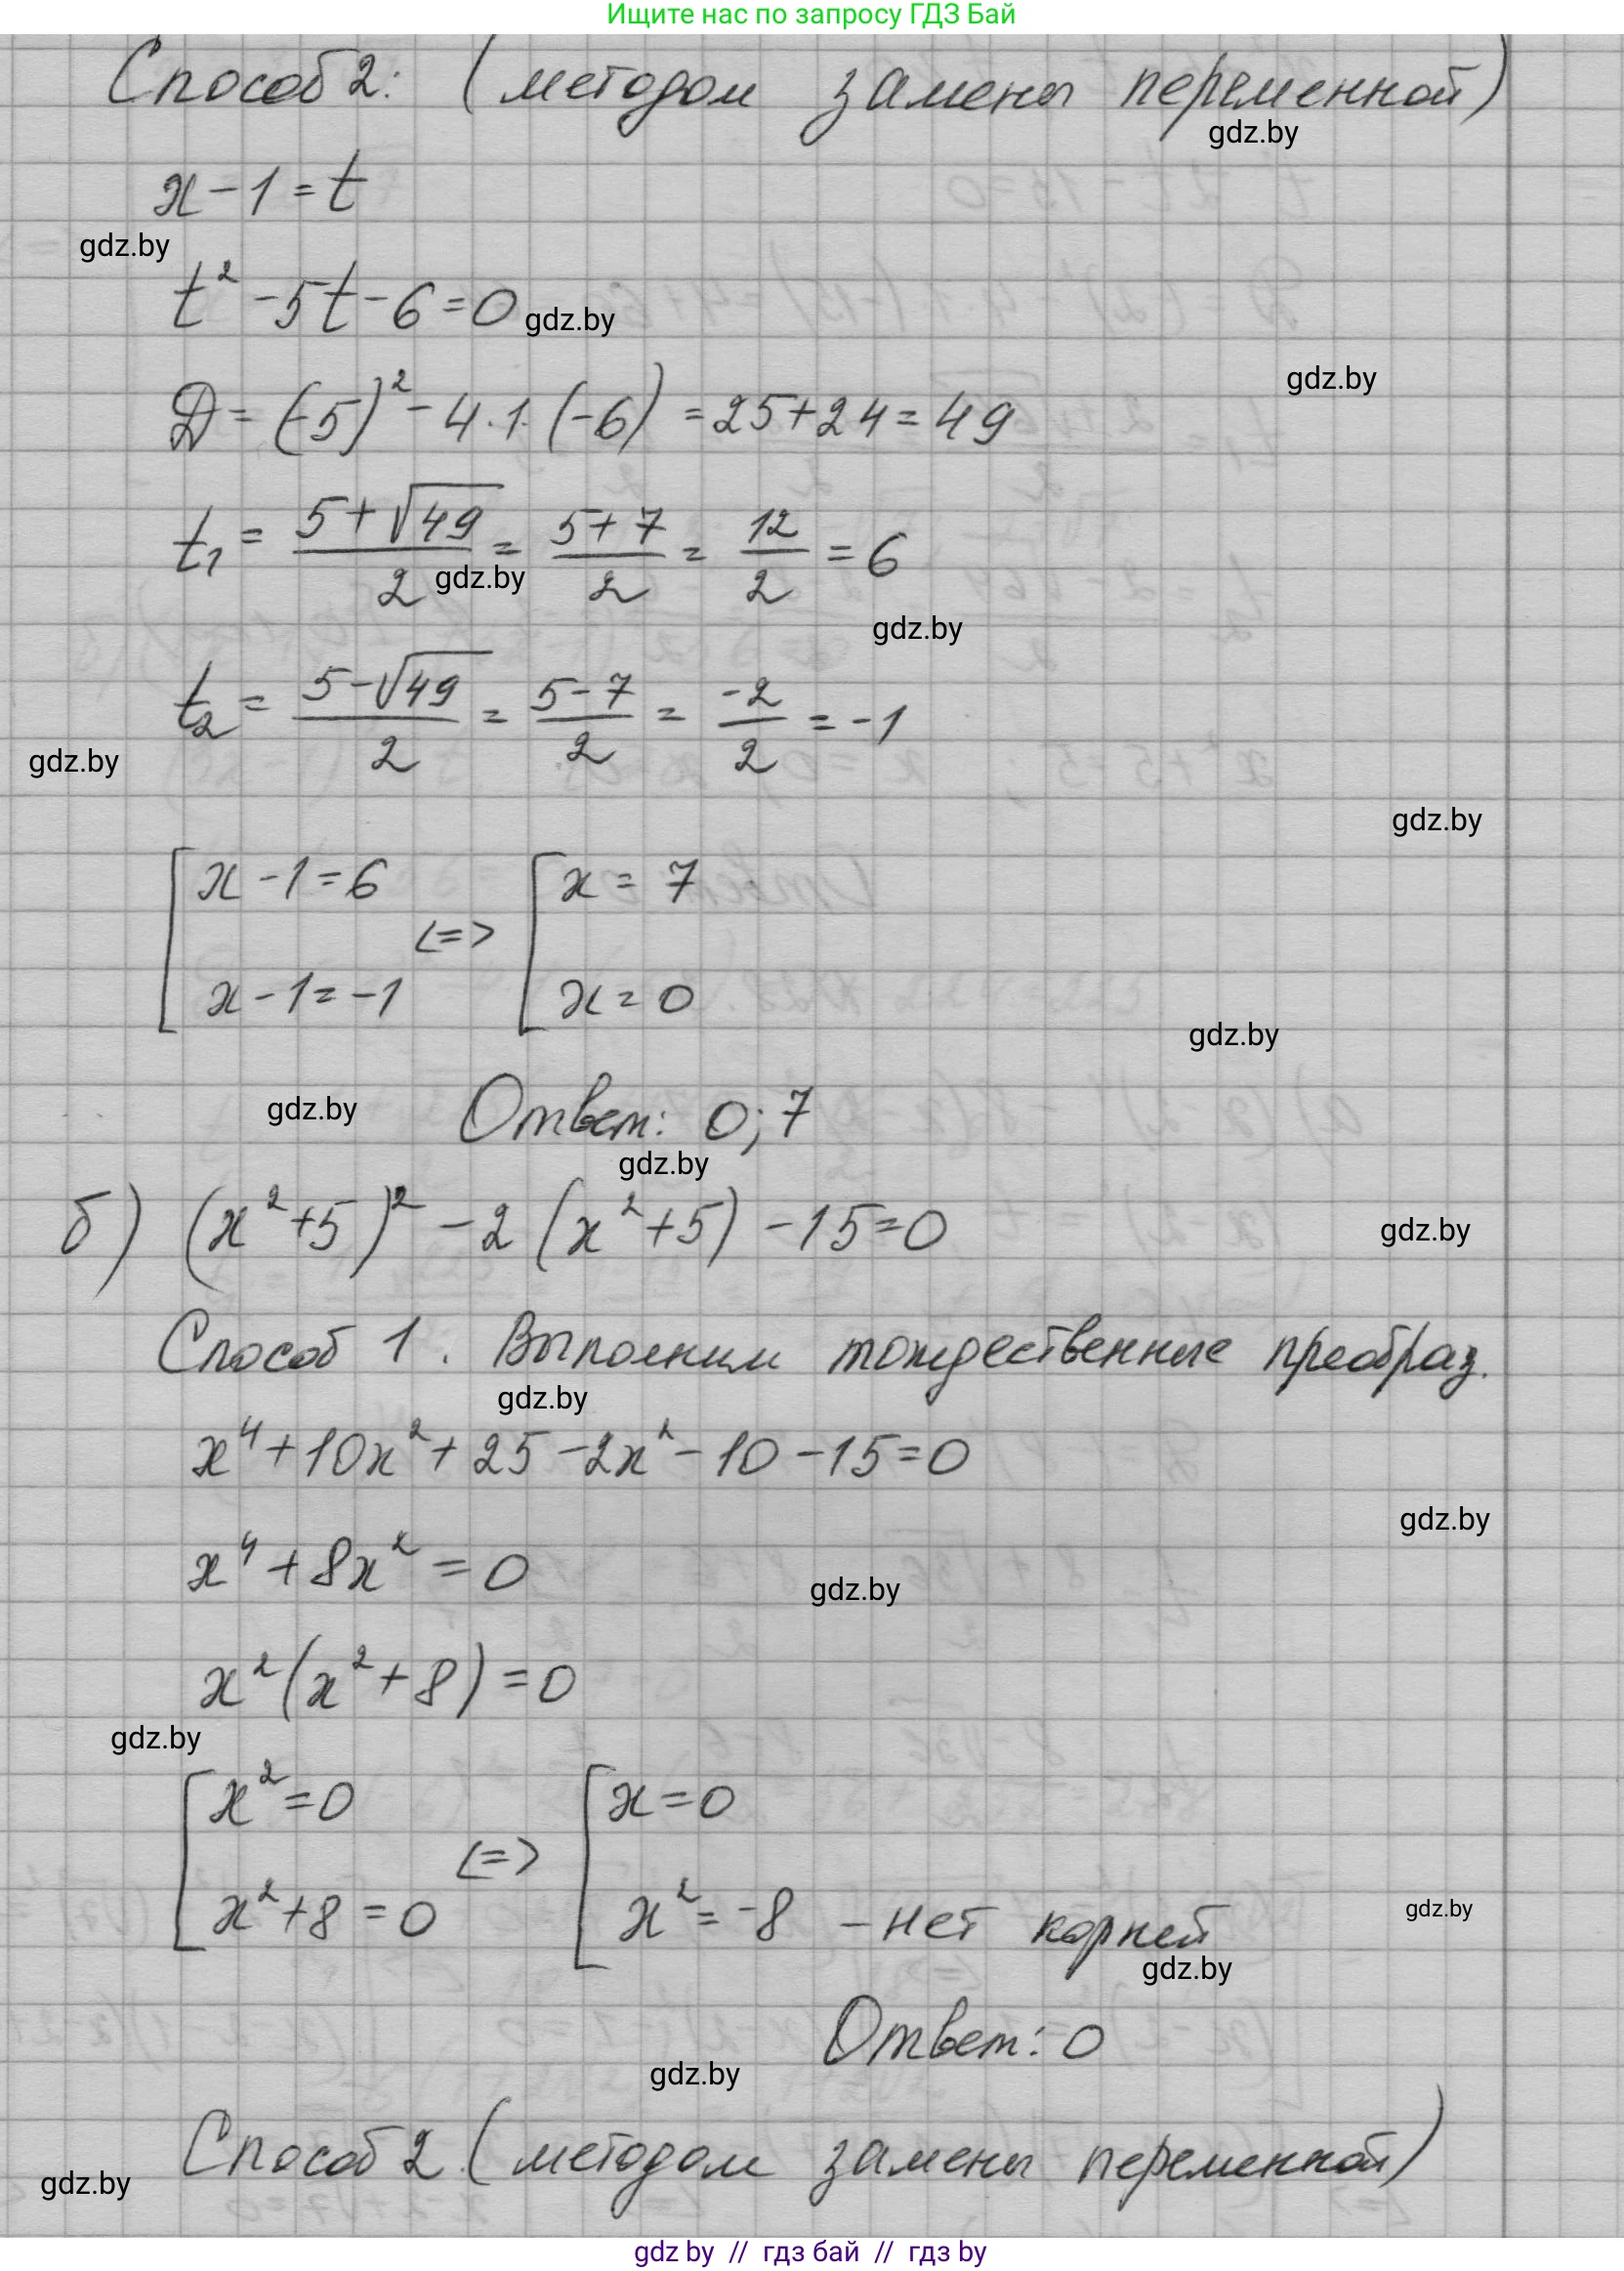 Ищите нас по запросу ГДЗ Бай
Способ 2: (методом замены переменной)
gdz.by
x - 1 = t
gdz.by
t² - 5t - 6 = 0 gdz.by
gdz.by
D = (-5)² - 4·1·(-6) = 25 + 24 = 49
t₁ = (5 + √49)/2 = (5 + 7)/2 = 12/2 = 6
gdz.by
gdz.by
t₂ = (5 - √49)/2 = (5 - 7)/2 = -2/2 = -1
gdz.by
gdz.by
[ x - 1 = 6 <=> [ x = 7
x - 1 = -1 x = 0
gdz.by
gdz.by Ответ: 0; 7
gdz.by
б) (x² + 5)² - 2(x² + 5) - 15 = 0 gdz.by
Способ 1. Выполним тождественные преобраз.
gdz.by
x⁴ + 10x² + 25 - 2x² - 10 - 15 = 0
gdz.by
x⁴ + 8x² = 0
gdz.by
x²(x² + 8) = 0
gdz.by
[ x² = 0 <=> [ x = 0
x² + 8 = 0 x² = -8 - нет корней
gdz.by
gdz.by
Ответ: 0
gdz.by
Способ 2 (методом замены переменной)
gdz.by
gdz by // гдз бай // гдз by